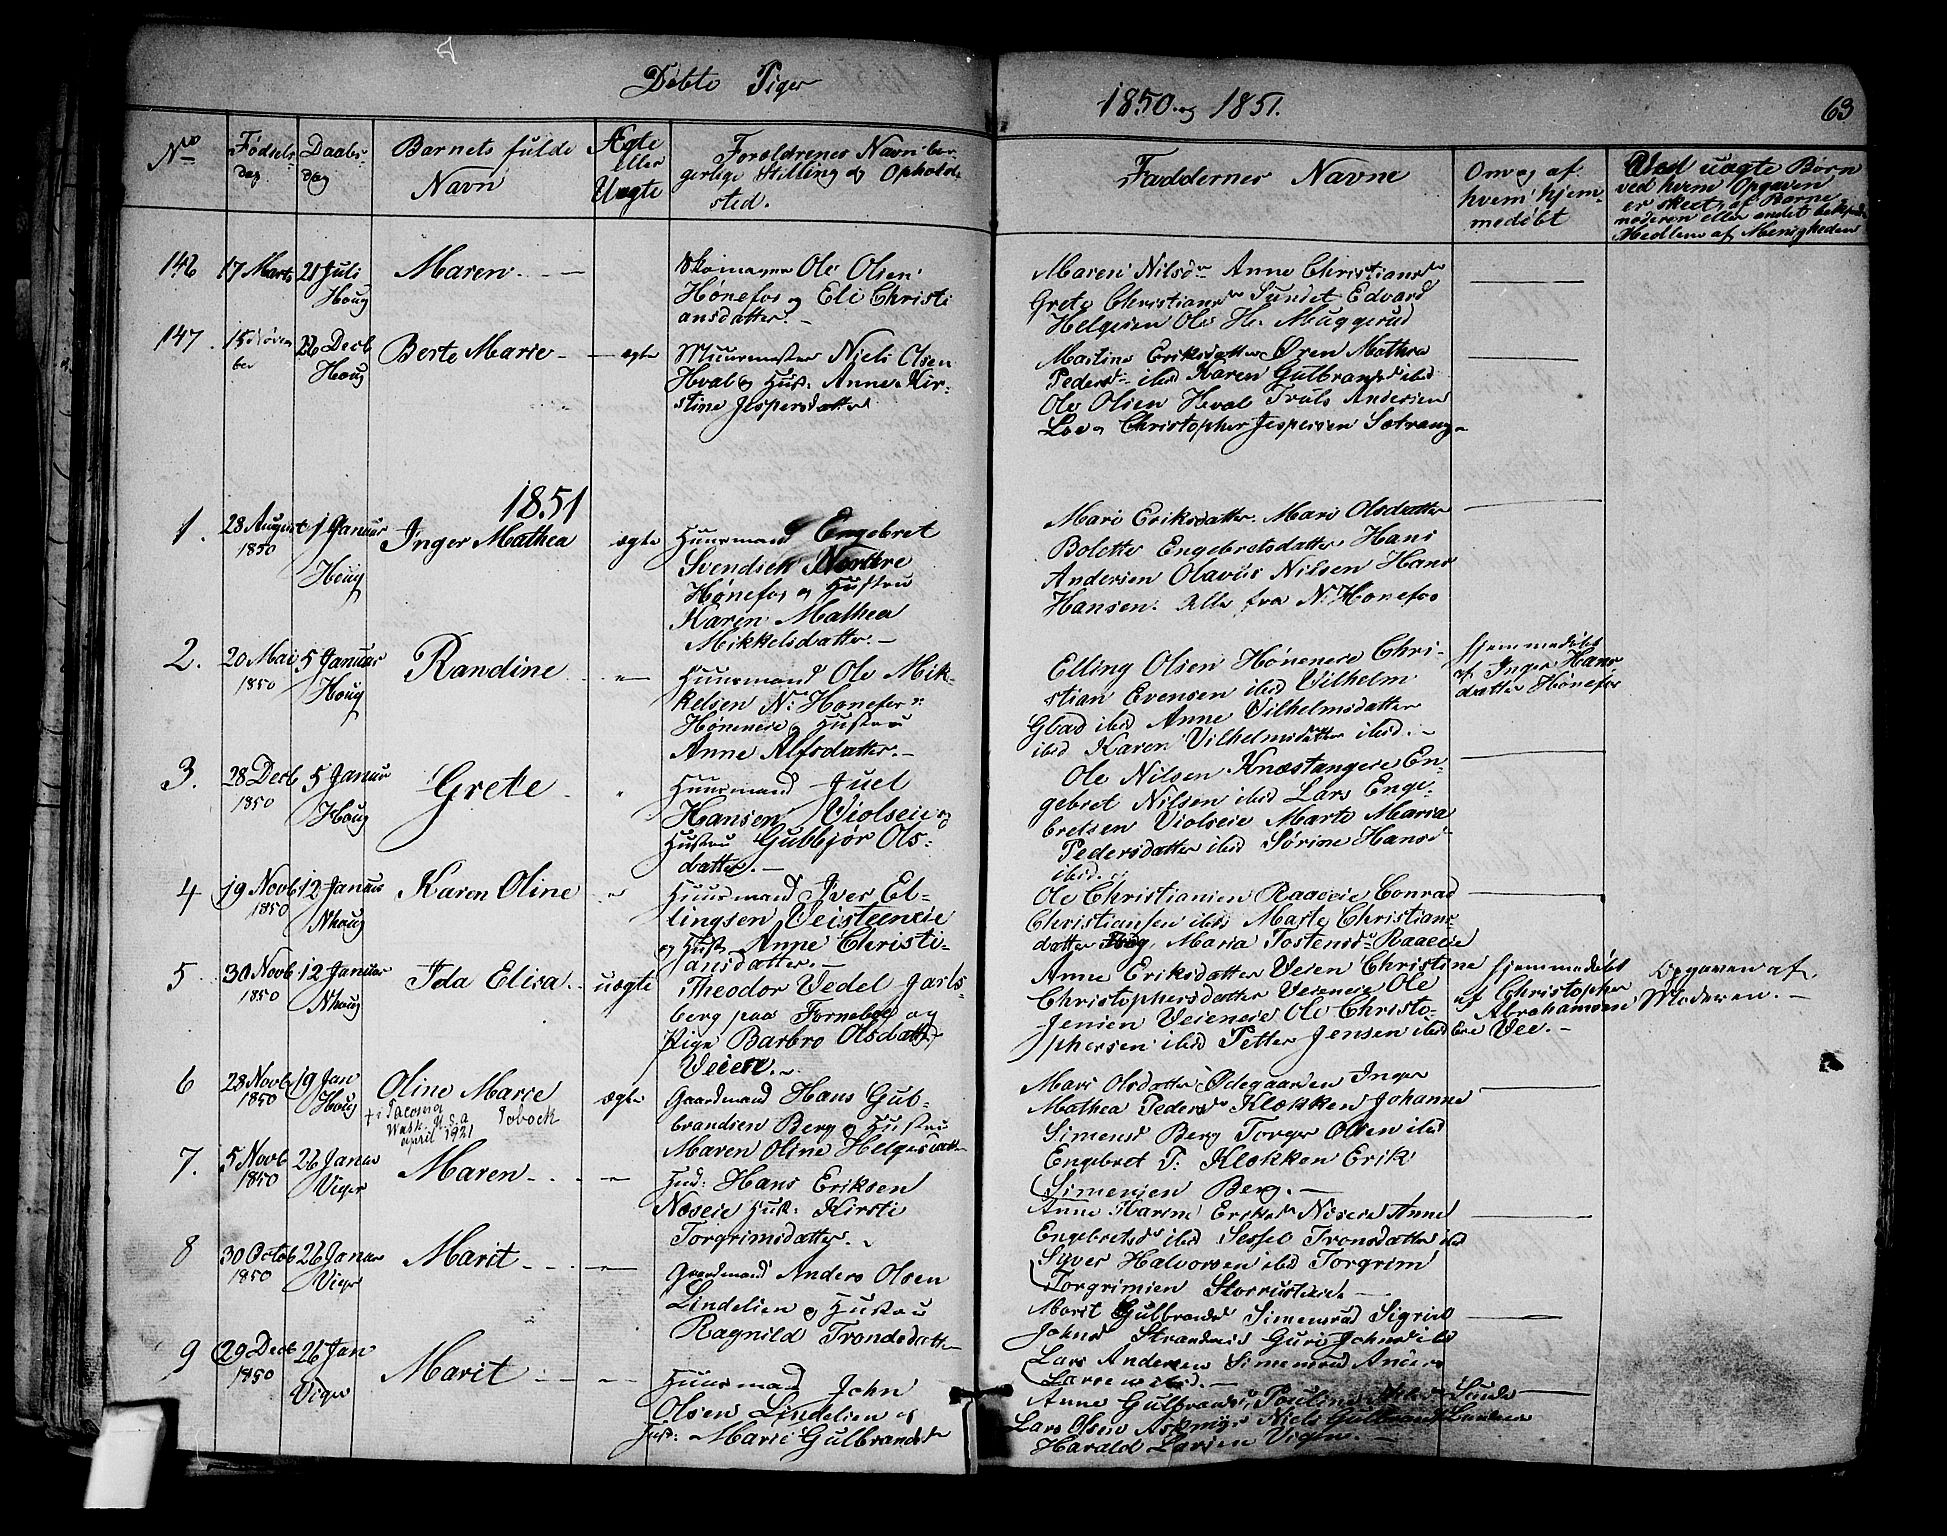 Döbte Piger
1850 og 1851.
63
No
Fødsels
dag
Daabs
dag
Barnets fulde
Navn
Ægte
eller
Uægte
Forældrenes Navn bor
gerlige Stilling og Opholds
sted.
Faddernes Navne
Om og af
hvem hjem
medöbt
Ved uægte Børn
ved hvem Opgaven
er skeet, af Barne
moderen eller andet bekjendt
Medlem af Menigheden
146 17 Marts 21 Juli Maren
Houg
Skomager Ole Olsen
Hønefos og Eli Christi
ansdatter.
Maren Nilsdr Anne Christiansdr
Grete Christiansdr Sundet Edvard
Helgesen Ole H. Muggerud
147. 15 Novem 26 Decb Berte Marie ægte
ber Houg
Muurmester Niels Olsen
Hval og Hust. Anne Kir-
stine Jespersdatter
Martine Eriksdatter Øren Mathea
Pedersdr ibid Karen Gulbransd ibid
Ole Olsen Hval Truls Andersen
Loe og Christopher Jespersen Sætrang
1851
1. 28 August 1 Januar Inger Mathea ægte
1850 Houg
Huusmand Engebret
Svendsen Nordre
Hønefos og Hustru
Karen Mathea
Mikkelsdatter.
Mari Eriksdatter Mari Olsdatter
Bolette Engebretsdatter Hans
Andersen Olavus Nilsen Hans
Hansen. Alle fra N. Hønefos
2. 20 Mai 5 Januar Randine
1850 Houg
Huusmand Ole Mik-
kelsen N. Hønefos
Høneneie og Hustru
Anne Alfsdatter.
Elling Olsen Høneneie Chri-
stian Evensen ibid Vilhelm
Glad ibid Anne Vilhelmsdatter
ibid Karen Vilhelmsdatter ibid.
hjemmedöbt
af Inger Hans
datter Hønefos
3. 28 Decb 5 Januar Grete
1850 Houg
Huusmand Juel
Hansen Violseie og
Hustru Gubbjør Ols-
datter.
Ole Nilsen Knæstangeie En-
gebret Nilsen ibid Lars Enge-
bretsen Violseie Marte Maria
Pedersdatter ibid Sörine Hansd
ibid.
4 19 Novb 12 Januar Karen Oline
1850 Nhoug
Huusmand Iver El-
lingsen Veisteeneie
og Hust Anne Christi-
ansdatter.
Ole Christiansen Raaeeie Conrad
Christiansen ibid Marte Christians
datter Maria Tostensdr Raaeeie
5 30 Novb 12 Januar Ida Elisa uægte
1850 Nhoug
Theodor Vedel Jarls-
berg paa Fornebo og
Pige Barbro Olsdatt
Veien.
Anne Eriksdatter Veien Christine
Christophersdatter Veieneie Ole
Jensen Veieneie Ole Christo-
phersen ibid Petter Jensen ibid
hjemmedöbt
af Christopher
Abrahamsen
Vee.
Opgaven af
Moderen.
6 28 Novb 19 Jan Oline Marie ægte
1850 Houg
+ i Tacoma
Wash. U.S.A
april 1921
Gaardmand Hans Gul-
brandsen Berg og Hustru
Maren Oline Helgesdatter
Mari Olsdatter Ødegaarden Inger
Mathea Pedersdr Klækken Johanne
Simensd Berg Torger Olsen ibid
Engebret P. Klækken Erik
Simensen Berg.
7. 5 Novb 26 Januar Maren
1850 Viger
Hud: Hans Eriksen
Næseie Hust: Kirsti
Torgrimsdatter.
Anne Karine Eriksdr Næseie Anne
Engebretsdr ibid Sessel Tronsdatter ibid
Syver Halvorsen ibid Torgrim
Torgrimsen Storrusteeie
8 30 Octob 26 Januar Marit
1850 Viger
Gaardmand Anders Olsen
Lindelien og Hustru
Ragnild Trondsdatter
Marit Gulbrandsd Simensrud Sigrid
Johnsd Strandeeie Guri Johnsd ibid
Lars Andersen Simensrud Anders
Larsen ibid.
9 29 Decb 26 Jan Marit
1850 Viger
Huusmand John
Olsen Lindelien og
Hust: Marie Gulbrandsdr
Anne Gulbrandsdr
Lars Olsen Niels Gulbrandsen
Harald Larsen Viger.